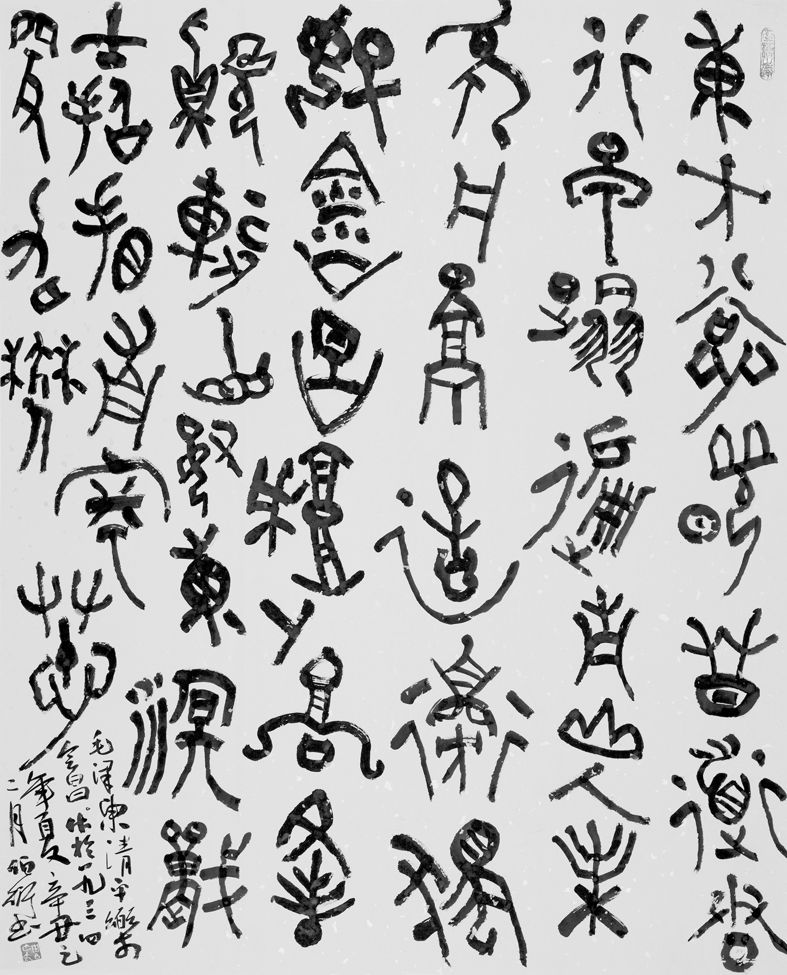 東方欲曉莫道君
行早蹋遍青山人未
老風景這邊獨
好會昌城外高峰
顛連直接東溟戰
士指看南粵
更加鬱蔥
毛澤東清平樂
會昌。作於一九三四
年夏辛丑之
二月